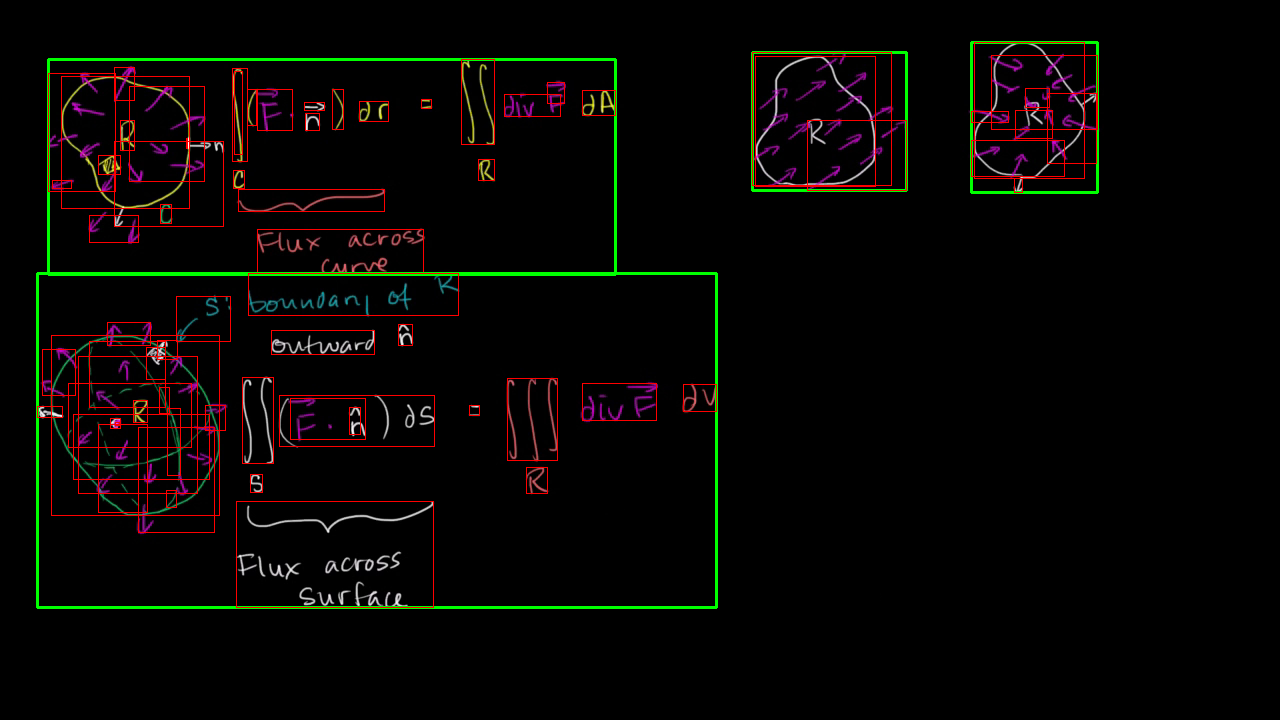 R
n
C
∫ ( F⃗ · n̂ ) dr = ∬ div F⃗ dA
C R
Flux across
curve
R
R
S: boundary of R
outward n̂
R
∬ ( F⃗ · n̂ ) dS = ∭ div F⃗ dV
S R
Flux across
surface